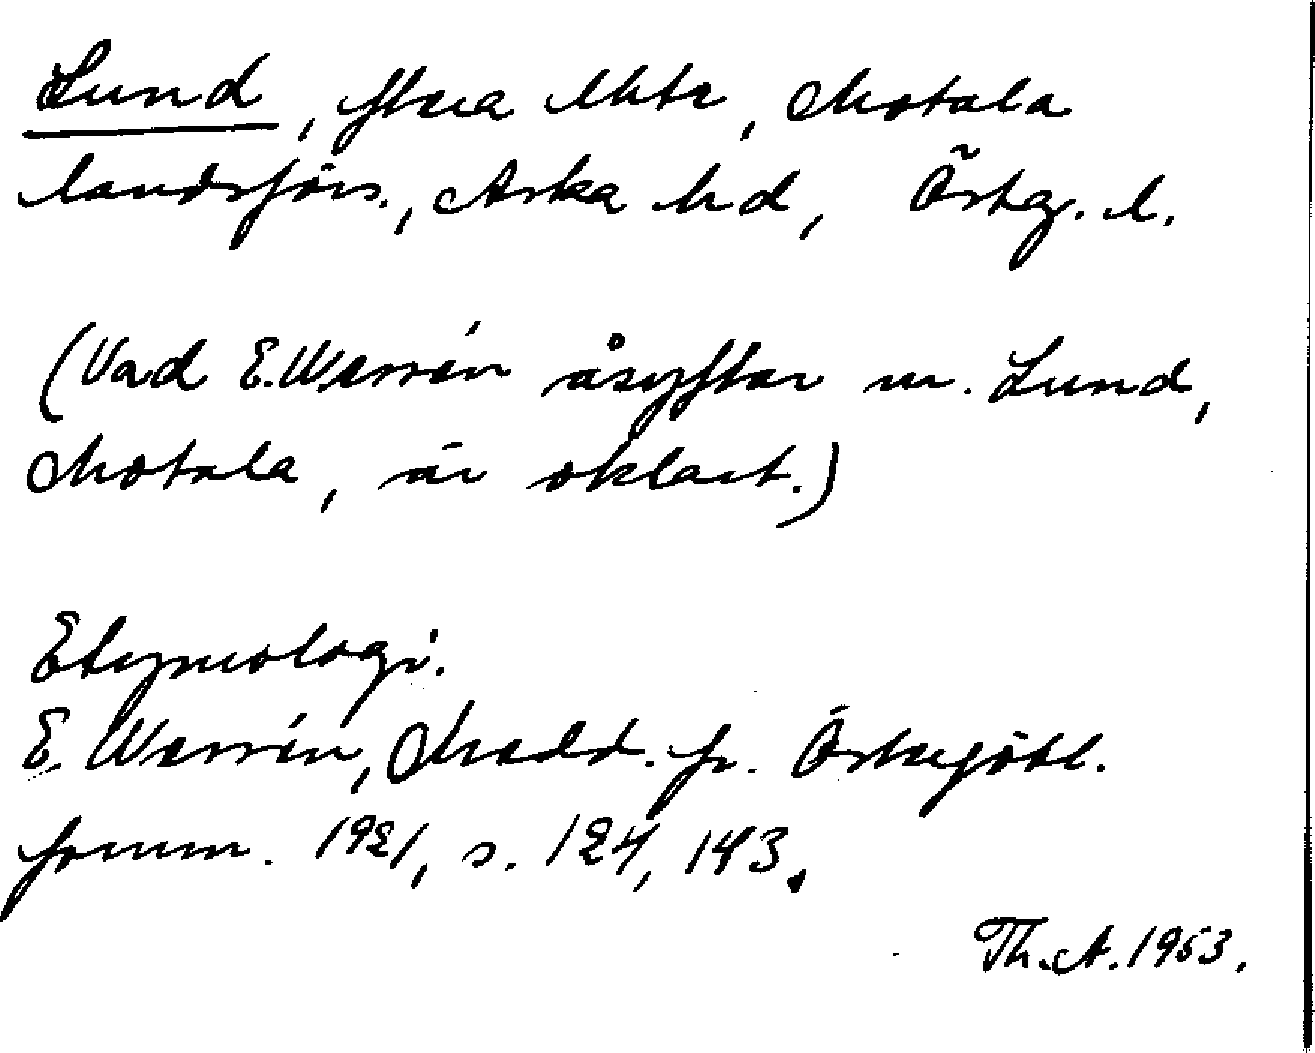 Lund, flera lhtr, Motala
landsförs., Aska hd, Östg. l.
(Vad E. Werrén åsyftar m. Lund,
Motala, är oklart.)
Etymologi.
E. Werrén, Medd. fr. Östergötl.
fornm. 1921, s. 124, 143.
Th. A. 1953.